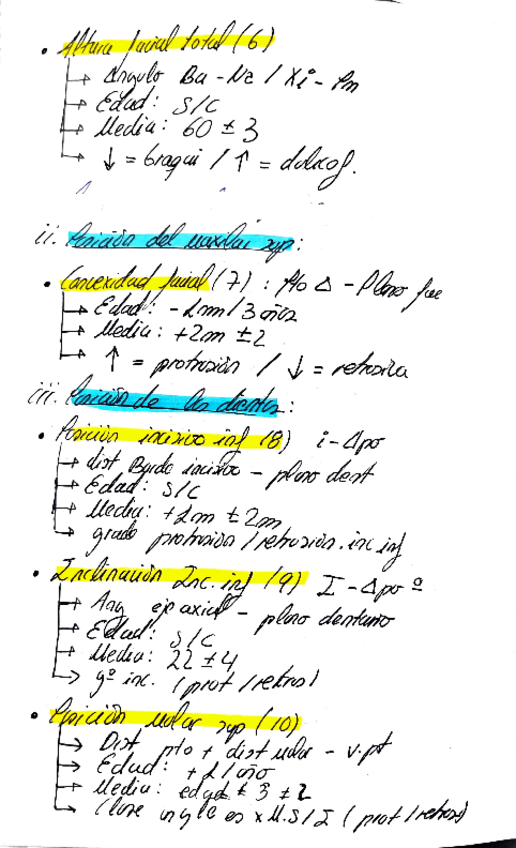 • Altura facial total (6)
↳ Ángulo Ba - Na / Xi - Pm
↳ Edad: S/C
↳ Media: 60 ± 3
↳ ↓ = braqui / ↑ = dolicof.
ii. Posición del maxilar sup:
• Convexidad facial (7) : pto A - Plano fac
↳ Edad: -1mm/3 años
↳ Media: +2m ± 2
↳ ↑ = protrusión / ↓ = retrusión
iii. Posición de los dientes:
• Posición incisivo inf (8) i-Apo
↳ dist Borde incisivo - plano dent
↳ Edad: S/C
↳ Media: +1m ± 2m
↳ grado protrusión / retrusión. inc inf
• Inclinación Inc. inf (9) I - Apo º
↳ Ang eje axial - plano dentario
↳ Edad: S/C
↳ Media: 22 ± 4
↳ gº inc. (prot / retrus)
• Posición molar sup (10)
↳ Dist pto + dist molar - v.pt
↳ Edad: + 1/año
↳ Media: edad + 3 ± 2
↳ Clase angle es x M.S/I (prot / retrus)